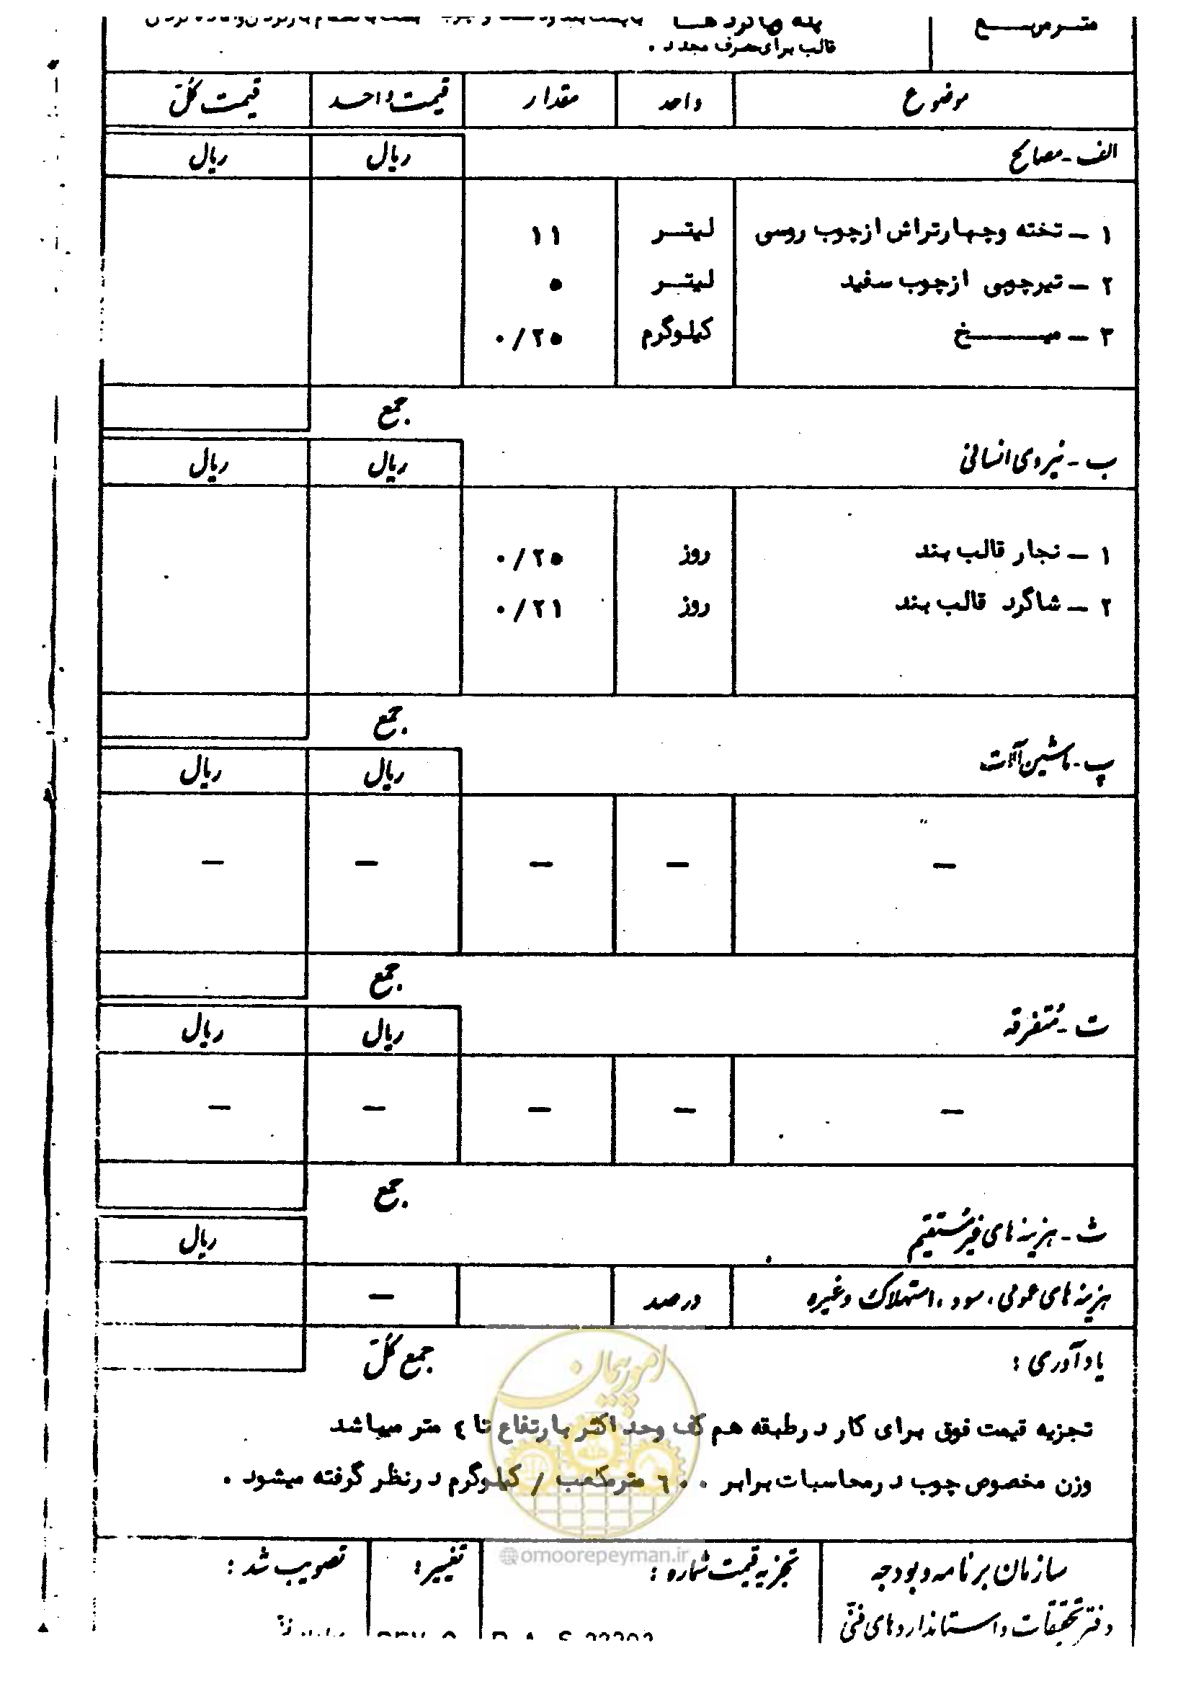 متـر مربـــع
قالب برای صرف مجدد .
موضوع واحد مقدار قیمت واحـد قیمت کلّ
الف - مصالح ریال ریال
۱ – تخته وچهارتراش ازچوب روسی لیتــر ۱۱
۲ – تیرچوبی ازچوب سفید لیتــر ۵
۳ – میـــــــخ کیلوگرم ۰/۲۵
جمع
ب - نیروی انسانی ریال ریال
۱ – نجار قالب بند روز ۰/۲۵
۲ – شاگرد قالب بند روز ۰/۲۱
جمع
پ - ماشین آلات ریال ریال
– – – – –
جمع
ت - مُتفرقه ریال ریال
– – – – –
جمع
ث - هزینه های غیرمُستقیم ریال
هزینه های عمومی ، سود ، استهلاک وغیره درصد –
یادآوری : جمع کلّ
تجزیه قیمت فوق برای کار درطبقه هم کف وحداکثر بارتفاع تا ٤ متر میباشد
وزن مخصوص چوب درمحاسبات برابر ٦۰۰ مترمکعب / کیلوگرم درنظر گرفته میشود .
امور پیمان
@omoorepeyman.ir
سازمان برنامه و بودجه تجزیه قیمت شماره : تغییر : تصویب شد :
دفتر تحقیقات و استانداردهای فنّی